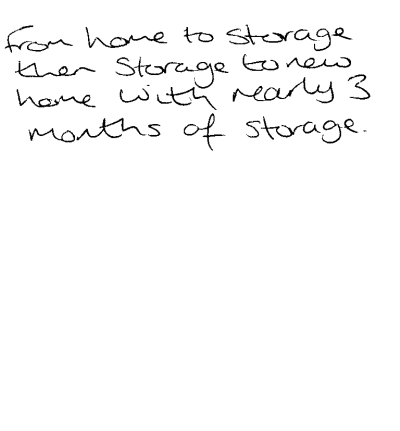 from home to storage
then storage to new
home with nearly 3
months of storage.